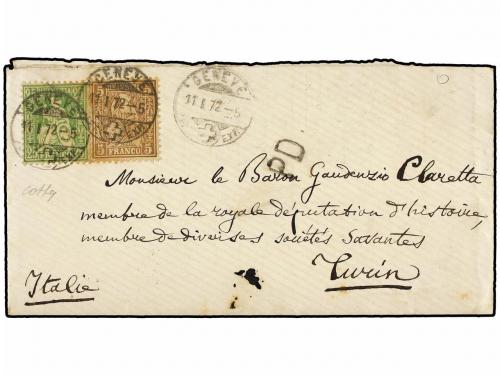 GENEVE
11 I 72-5
GENEVE
11 I 72-5
5 FRANCO 5
GENEVE
11 I 72-5
PD
Monsieur le Baron Gaudenzio Claretta
membre de la royale députation d'histoire,
membre de diverses sociétés Savantes
Turin
Italie